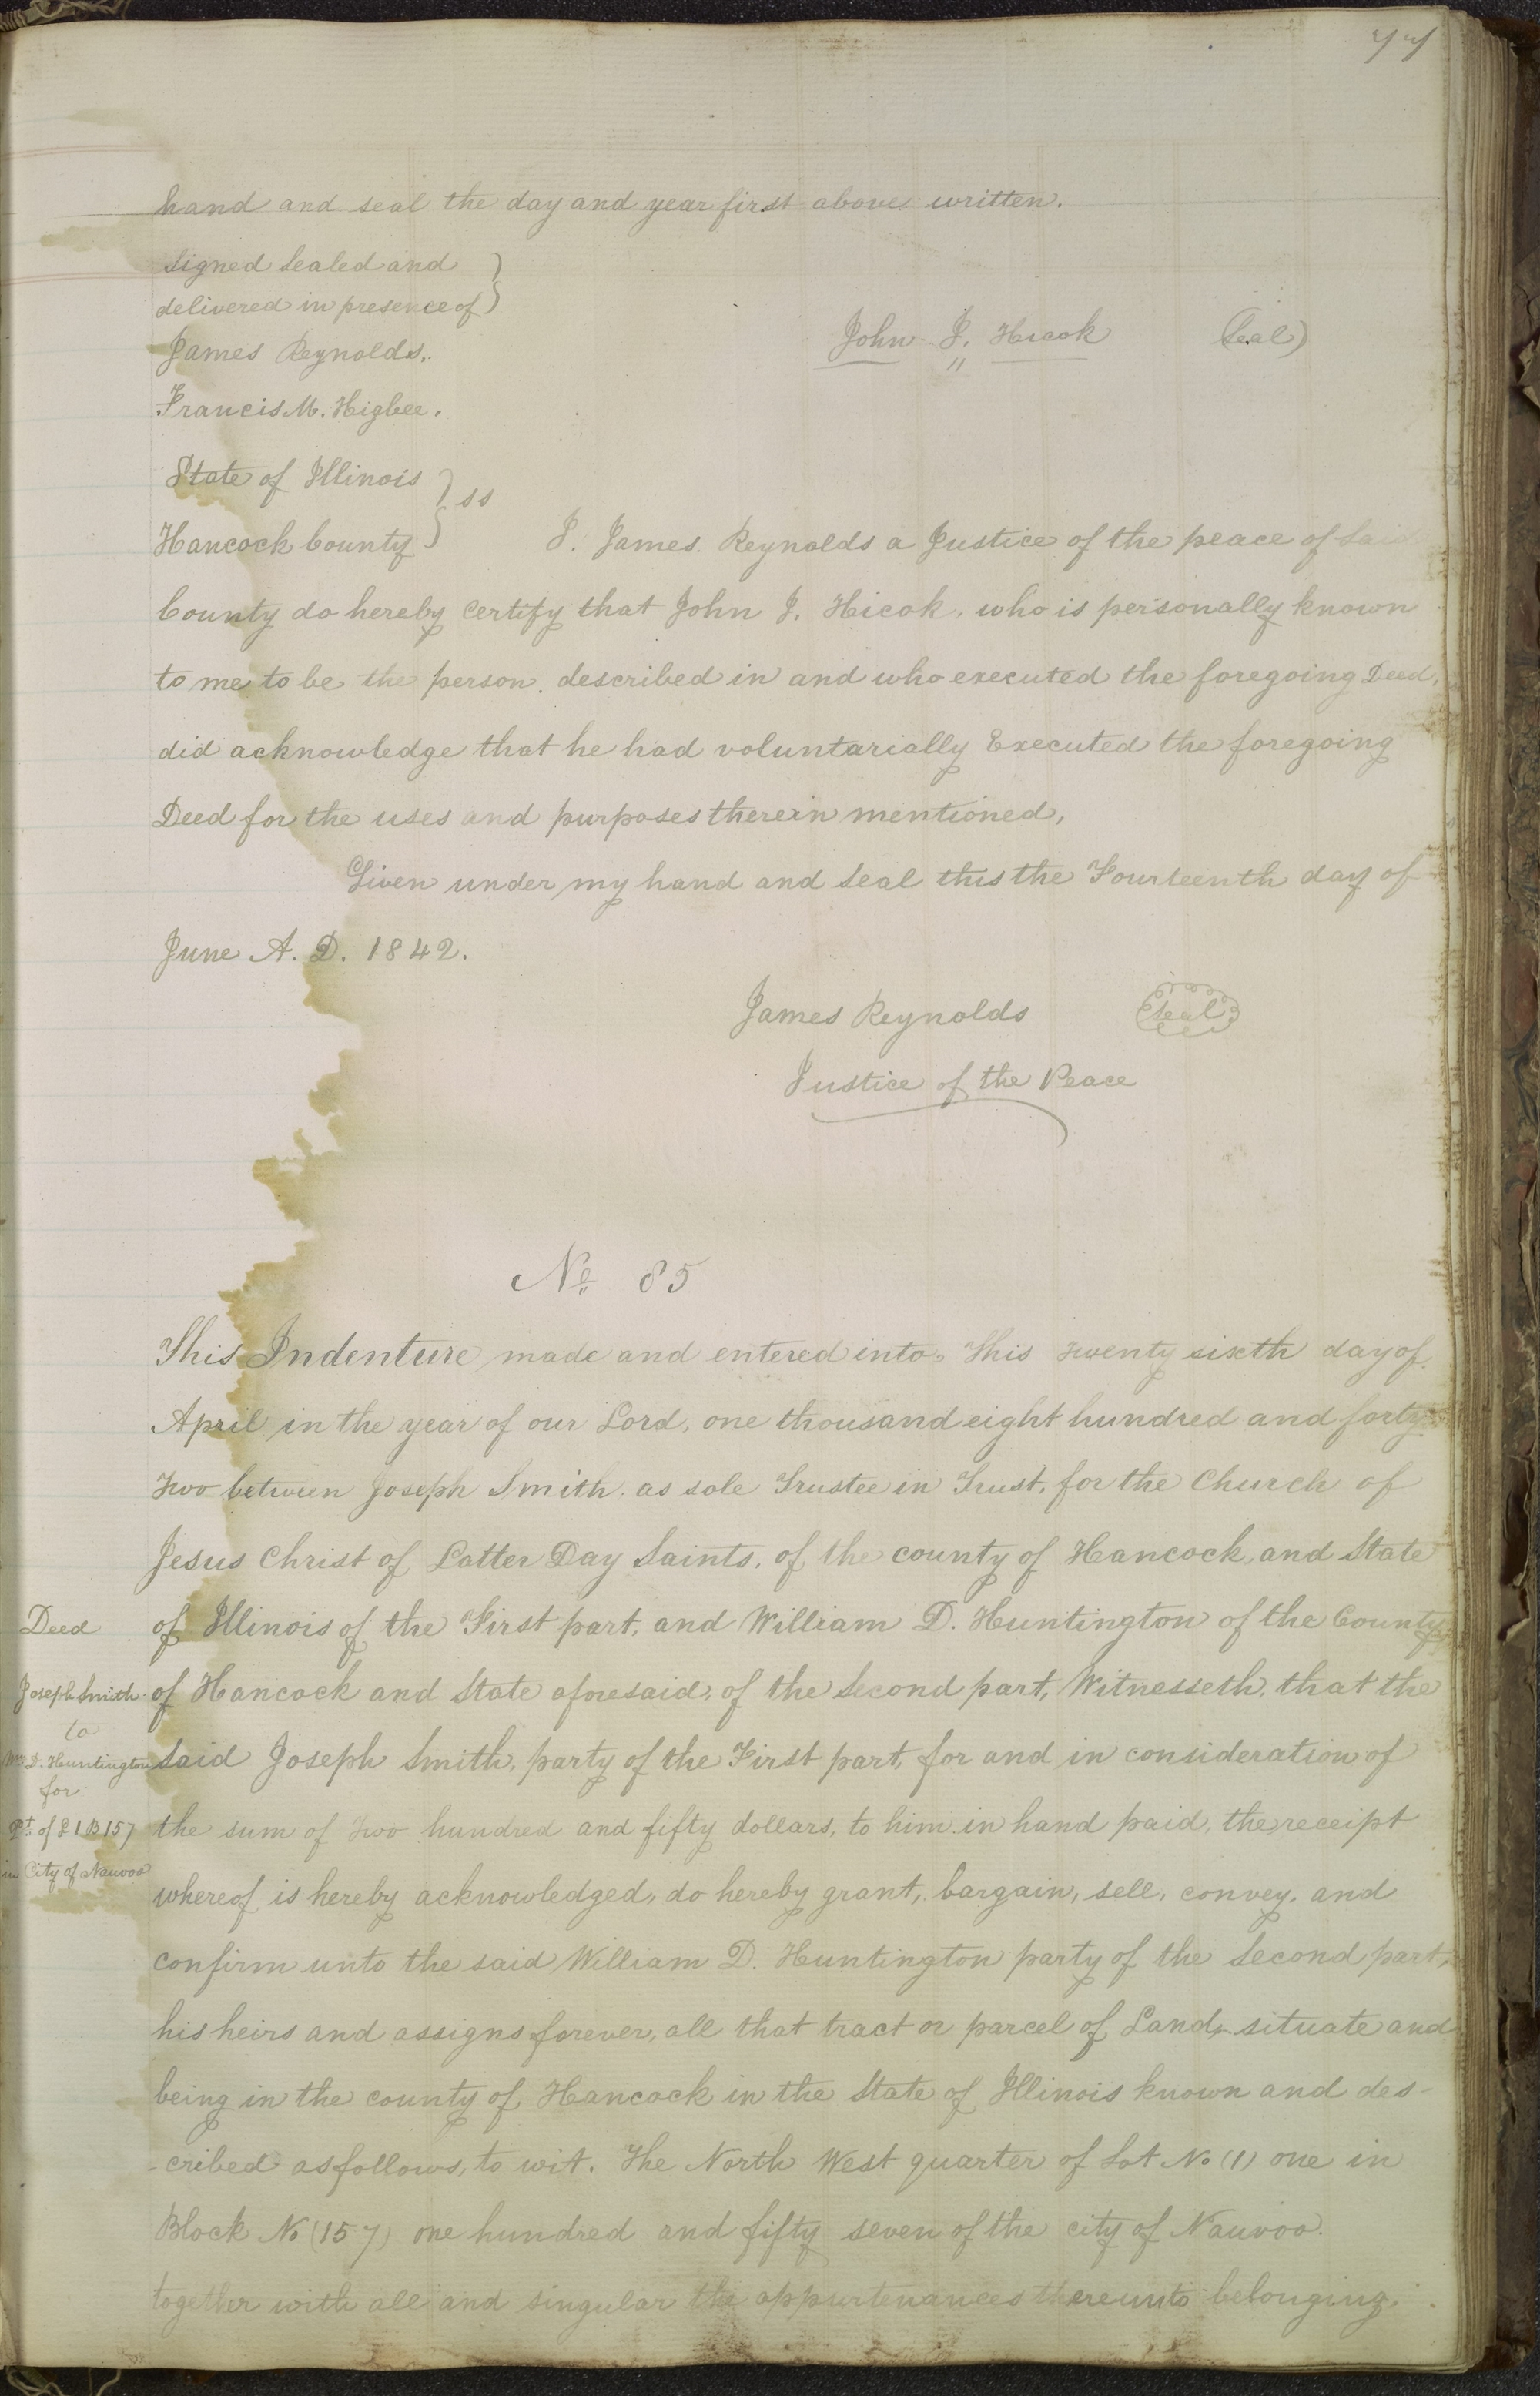 77
hand and seal the day and year first above written.
Signed Sealed and
delivered in presence of
James Reynolds.
John J. Hicok (Seal)
Francis M. Higbee.
State of Illinois
ss
Hancock County
I. James. Reynolds a Justice of the peace of Said
County do hereby certify that John J. Hicok, who is personally known
to me to be the person, described in and who executed the foregoing Deed,
did acknowledge that he had voluntarially Executed the foregoing
Deed for the uses and purposes therein mentioned,
Given under my hand and Seal this the Fourteenth day of
June A. D. 1842.
James Reynolds Seal
Justice of the Peace
No. 85
This Indenture made and entered into, This Twenty sixth day of
April in the year of our Lord, one thousand eight hundred and forty
Two between Joseph Smith, as sole Trustee in Trust, for the Church of
Jesus Christ of Latter Day Saints, of the county of Hancock, and State
Deed
of Illinois of the First part, and William D. Huntington of the County
Joseph Smith
of Hancock and State aforesaid, of the Second part, Witnesseth, that the
to
Wm D. Huntington
said Joseph Smith, party of the First part, for and in consideration of
for
Pt of L 1 B 157
the sum of Two hundred and fifty dollars, to him in hand paid, the receipt
in City of Nauvoo
whereof is hereby acknowledged, do hereby grant, bargain, sell, convey, and
confirm unto the said William D. Huntington party of the Second part,
his heirs and assigns forever, all that tract or parcel of Land, situate and
being in the county of Hancock in the State of Illinois known and des-
-cribed as follows, to wit. The North West quarter of Lot No (1) one in
Block No (157) one hundred and fifty seven of the city of Nauvoo.
together with all and singular the appurtenances thereunto belonging.